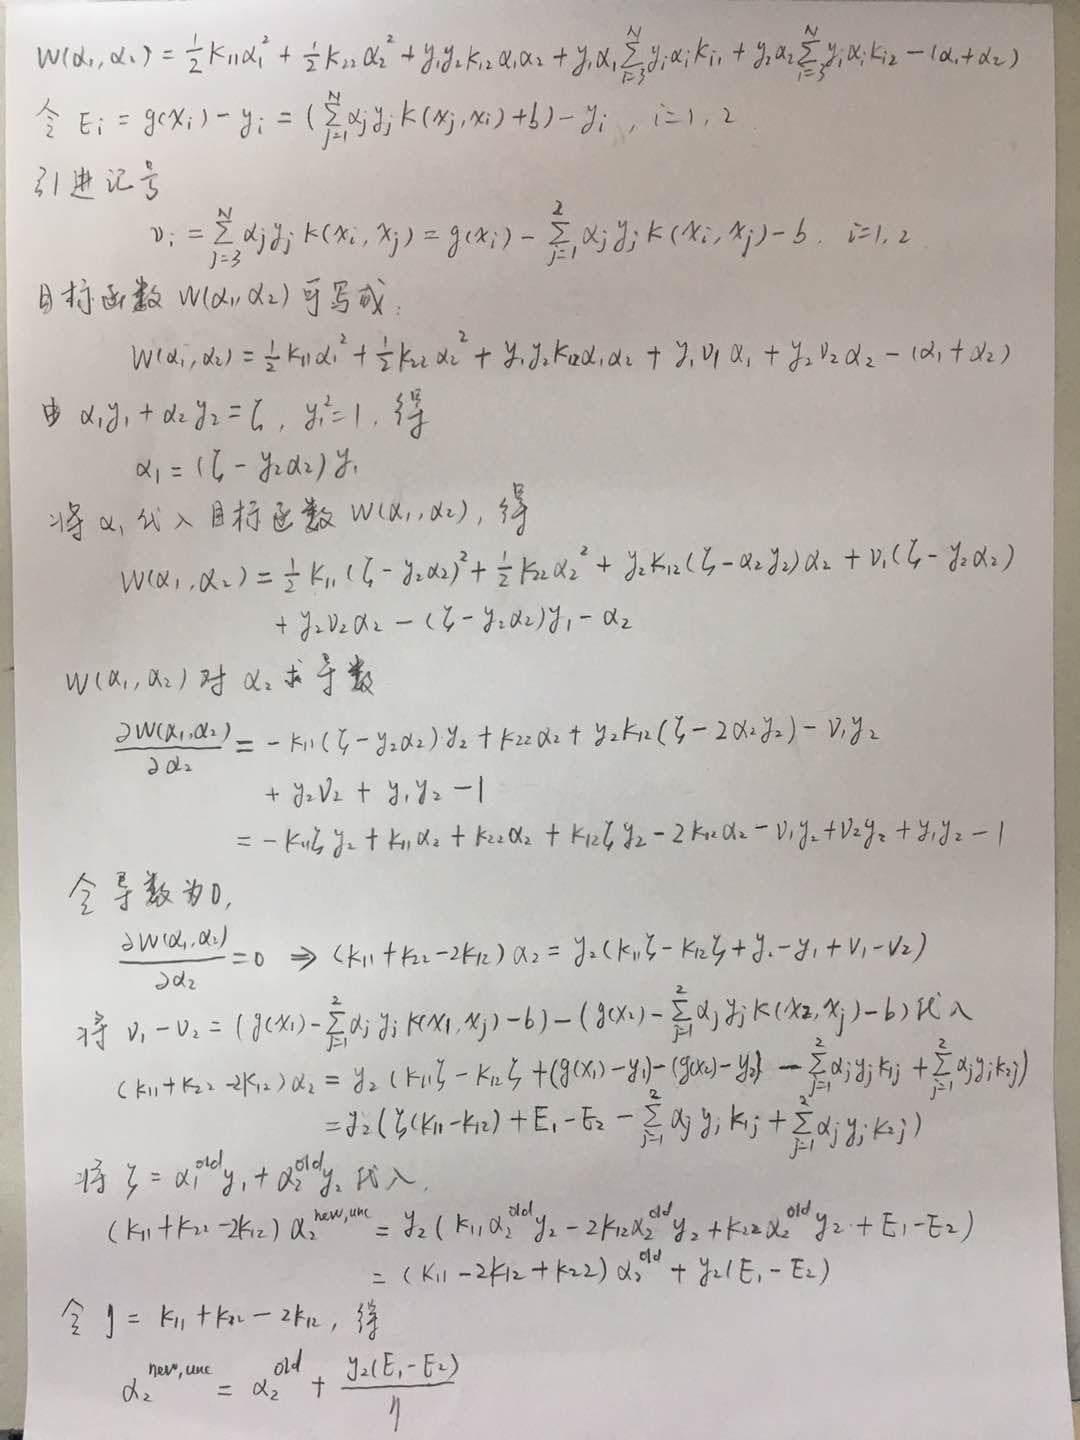 W(α₁,α₂) = ½K₁₁α₁² + ½K₂₂α₂² + y₁y₂K₁₂α₁α₂ + y₁α₁∑_{i=3}^{N} yᵢαᵢKᵢ₁ + y₂α₂∑_{i=3}^{N} yᵢαᵢKᵢ₂ − (α₁+α₂)
令 Eᵢ = g(xᵢ) − yᵢ = (∑_{j=1}^{N} αⱼyⱼK(xⱼ,xᵢ)+b) − yᵢ , i=1,2
引进记号
vᵢ = ∑_{j=3}^{N} αⱼyⱼK(xᵢ,xⱼ) = g(xᵢ) − ∑_{j=1}^{2} αⱼyⱼK(xᵢ,xⱼ) − b, i=1,2
目标函数 W(α₁,α₂) 可写成:
W(α₁,α₂) = ½K₁₁α₁² + ½K₂₂α₂² + y₁y₂K₁₂α₁α₂ + y₁v₁α₁ + y₂v₂α₂ − (α₁+α₂)
由 α₁y₁ + α₂y₂ = ζ, y₁² = 1, 得
α₁ = (ζ − y₂α₂)y₁
将 α₁ 代入目标函数 W(α₁,α₂), 得
W(α₁,α₂) = ½K₁₁(ζ − y₂α₂)² + ½K₂₂α₂² + y₂K₁₂(ζ − α₂y₂)α₂ + v₁(ζ − y₂α₂)
+ y₂v₂α₂ − (ζ − y₂α₂)y₁ − α₂
W(α₁,α₂) 对 α₂ 求导数
∂W(α₁,α₂)/∂α₂ = −K₁₁(ζ − y₂α₂)·y₂ + K₂₂α₂ + y₂K₁₂(ζ − 2α₂y₂) − v₁y₂
+ y₂v₂ + y₁y₂ − 1
= −K₁₁ζy₂ + K₁₁α₂ + K₂₂α₂ + K₁₂ζy₂ − 2K₁₂α₂ − v₁y₂ + v₂y₂ + y₁y₂ − 1
令导数为0,
∂W(α₁,α₂)/∂α₂ = 0 ⇒ (K₁₁+K₂₂−2K₁₂)α₂ = y₂(K₁₁ζ − K₁₂ζ + y₂ − y₁ + v₁ − v₂)
将 v₁ − v₂ = (g(x₁) − ∑_{j=1}^{2} αⱼyⱼK(x₁,xⱼ) − b) − (g(x₂) − ∑_{j=1}^{2} αⱼyⱼK(x₂,xⱼ) − b) 代入
(K₁₁+K₂₂−2K₁₂)α₂ = y₂(K₁₁ζ − K₁₂ζ + (g(x₁)−y₁) − (g(x₂)−y₂) − ∑_{j=1}^{2} αⱼyⱼK₁ⱼ + ∑_{j=1}^{2} αⱼyⱼK₂ⱼ)
= y₂(ζ(K₁₁−K₁₂) + E₁−E₂ − ∑_{j=1}^{2} αⱼyⱼK₁ⱼ + ∑_{j=1}^{2} αⱼyⱼK₂ⱼ)
将 ζ = α₁^{old}y₁ + α₂^{old}y₂ 代入,
(K₁₁+K₂₂−2K₁₂)α₂^{new,unc} = y₂(K₁₁α₂^{old}y₂ − 2K₁₂α₂^{old}y₂ + K₂₂α₂^{old}y₂ + E₁−E₂)
= (K₁₁ − 2K₁₂ + K₂₂)α₂^{old} + y₂(E₁−E₂)
令 η = K₁₁+K₂₂−2K₁₂, 得
α₂^{new,unc} = α₂^{old} + y₂(E₁−E₂)/η